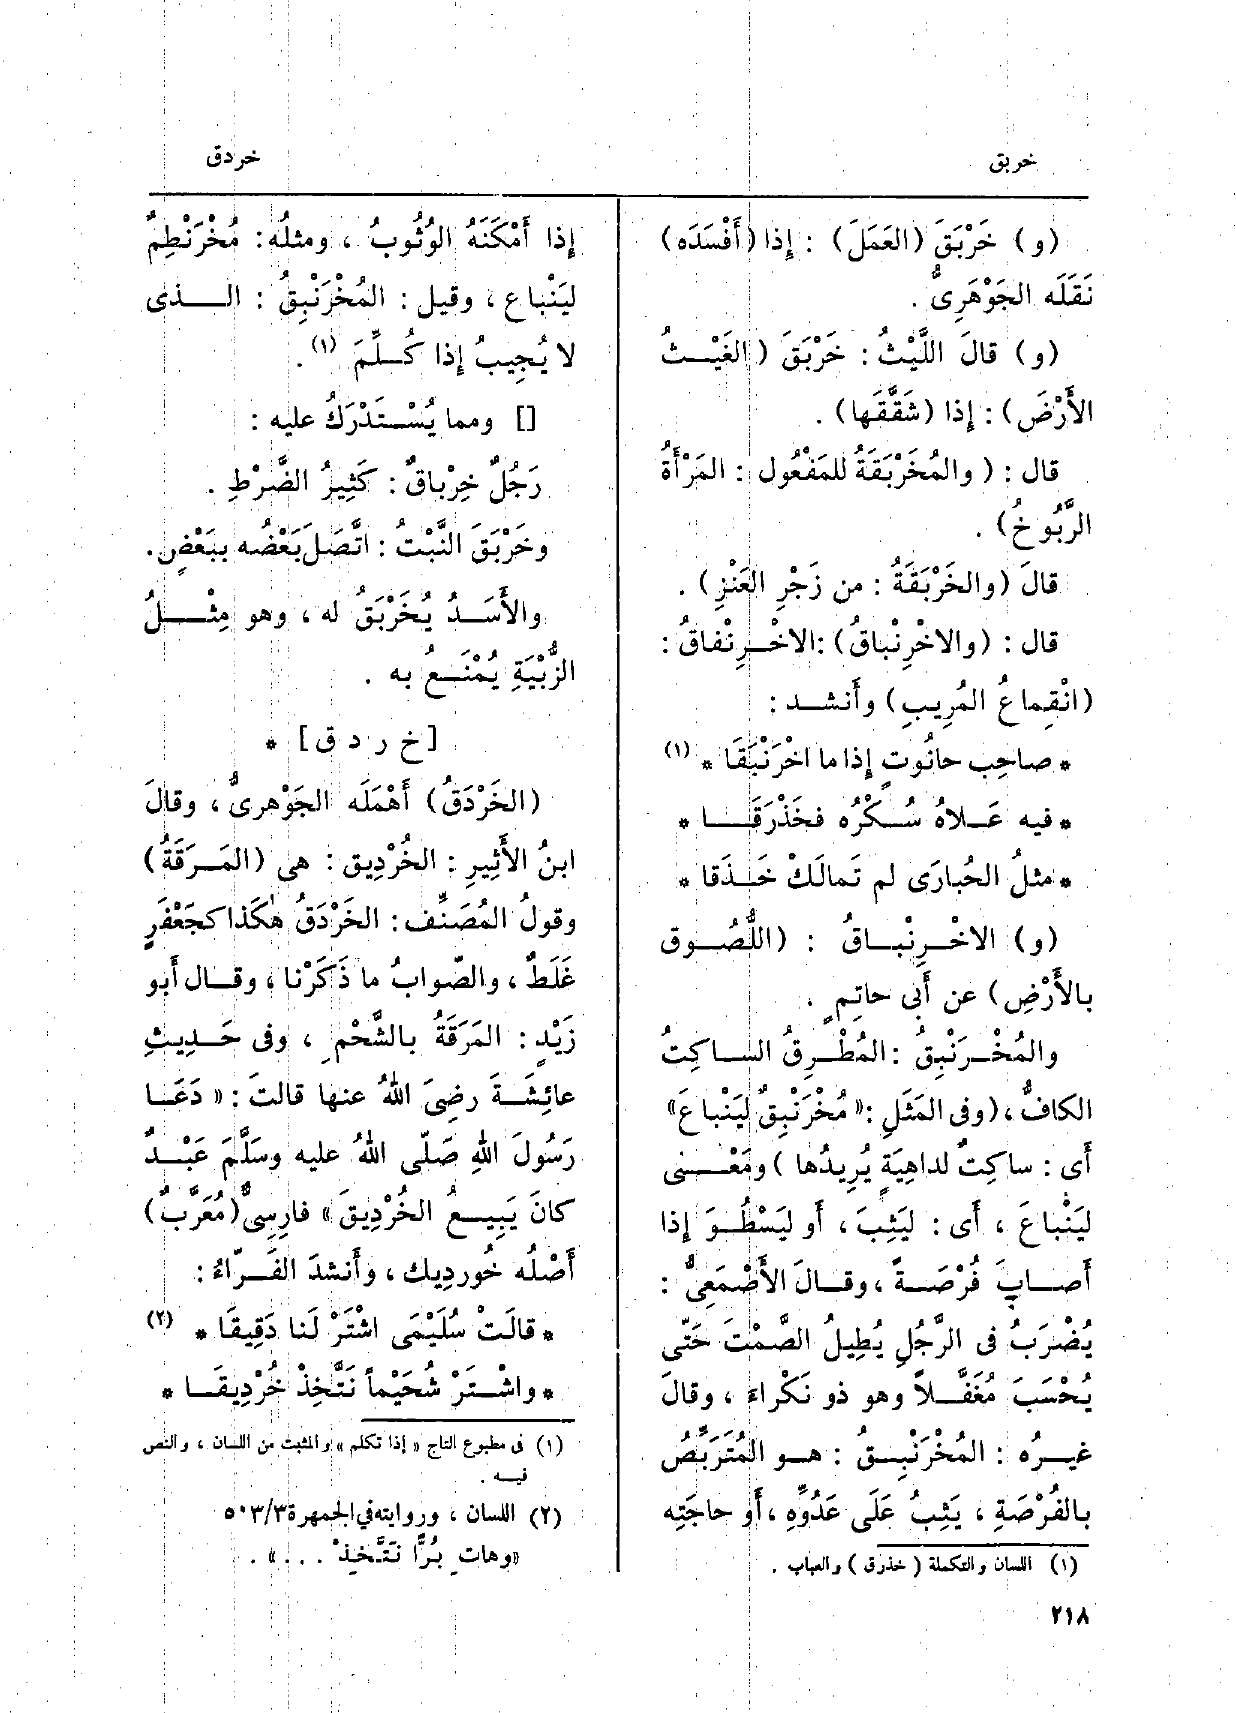 خربق
خردق
(و) خَرْبَقَ (العَمَلَ) : إِذا (أَفْسَدَه)
نَقَلَه الجَوْهَرِىُّ .
(و) قالَ اللَّيْثُ : خَرْبَقَ (الغَيْثُ
الأَرْضَ) : إِذا (شَقَّقَها) .
قال : (والمُخَرْبَقَةُ للمَفْعُول : المَرْأَةُ
الرَّبُوخُ) .
قالَ (والخَرْبَقَةُ : من زَجْرِ العَنْزِ) .
قال : (والاخْرِنْباقُ) : الاخْرِنْفاقُ :
(انْقِماعُ المُرِيبِ) وأَنشد :
* صاحِب حانُوتٍ إِذا ما اخْرَنْبَقَا * (١)
* فيه عَلاهُ سُكْرُه فخَذْرَقَا *
* مثلُ الحُبارَى لم تَمالَكْ خَذَقا *
(و) الاخْرِنْباقُ : (اللُّصُوق
بالأَرْضِ) عن أَبى حاتِمٍ .
والمُخْرَنْبِقُ : المُطْرِقُ الساكِتُ
الكافُّ ، (وفى المَثَلِ : « مُخْرَنْبِقٌ لِيَنْباعَ »
أَى : ساكِتٌ لداهِيَةٍ يُرِيدُها ) ومَعْنى
لِيَنْباعَ ، أَى : لِيَثِبَ ، أَو لِيَسْطُوَ إِذا
أَصابَ فُرْصَةً ، وقالَ الأَصْمَعِىُّ :
يُضْرَبُ فى الرَّجُلِ يُطِيلُ الصَّمْتَ حَتّى
يُحْسَبَ مُغَفَّلاً وهو ذو نَكْراءَ ، وقالَ
غيرُه : المُخْرَنْبِقُ : هو المُتَرَبِّصُ
بالفُرْصَةِ ، يَثِبُ عَلَى عَدُوِّهِ ، أَو حاجَتِه
(١) اللسان والتكملة ( خذرق ) والعباب .
إِذا أَمْكَنَهُ الوُثُوبُ ، ومثلُه : مُخْرَنْطِمٌ
لِيَنْباع ، وقيل : المُخْرَنْبِقُ : الذى
لا يُجِيبُ إِذا كُلِّمَ (١) .
[] ومما يُسْتَدْرَكُ عليه :
رَجُلٌ خِرْباقٌ : كَثِيرُ الضَّرْطِ .
وخَرْبَقَ النَّبْتُ : اتَّصَلَ بَعْضُه ببَعْضٍ .
والأَسَدُ يُخَرْبَقُ له ، وهو مِثْلُ
الزُّبْيَةِ يُمْنَعُ به .
[ خ ر د ق ] *
(الخَرْدَقُ) أَهْمَلَه الجَوْهَرِىُّ ، وقالَ
ابنُ الأَثِيرِ : الخُرْدِيق : هى (المَرَقَةُ)
وقولُ المُصَنِّف : الخَرْدَقُ هٰكَذا كجَعْفَرٍ
غَلَطٌ ، والصّوابُ ما ذَكَرْنا ، وقال أَبو
زَيْدٍ : المَرَقَةُ بالشَّحْمِ ، وفى حَدِيثِ
عائِشَةَ رضِىَ اللهُ عنها قالتَ : « دَعَا
رَسُولَ اللهِ صَلّى اللهُ عليه وسَلَّمَ عَبْدٌ
كانَ يَبِيعُ الخُرْدِيقَ » فارِسِىٌّ (مُعَرَّبٌ)
أَصْلُه خُورديك ، وأَنشدَ الفَرّاءُ :
* قالَتْ سُلَيْمَى اشْتَرْ لَنا دَقِيقَا * (٢)
* واشْتَرْ شُحَيْماً نَتَّخِذْ خُرْدِيقَا *
(١) فى مطبوع التاج « إذا تكلم » والمثبت من اللسان ، والنص
فيه .
(٢) اللسان ، وروايته فى الجمهرة ٥٠٣/٣
« وهاتِ بُرًّا نَتَّخِذْ ... » .
٢١٨